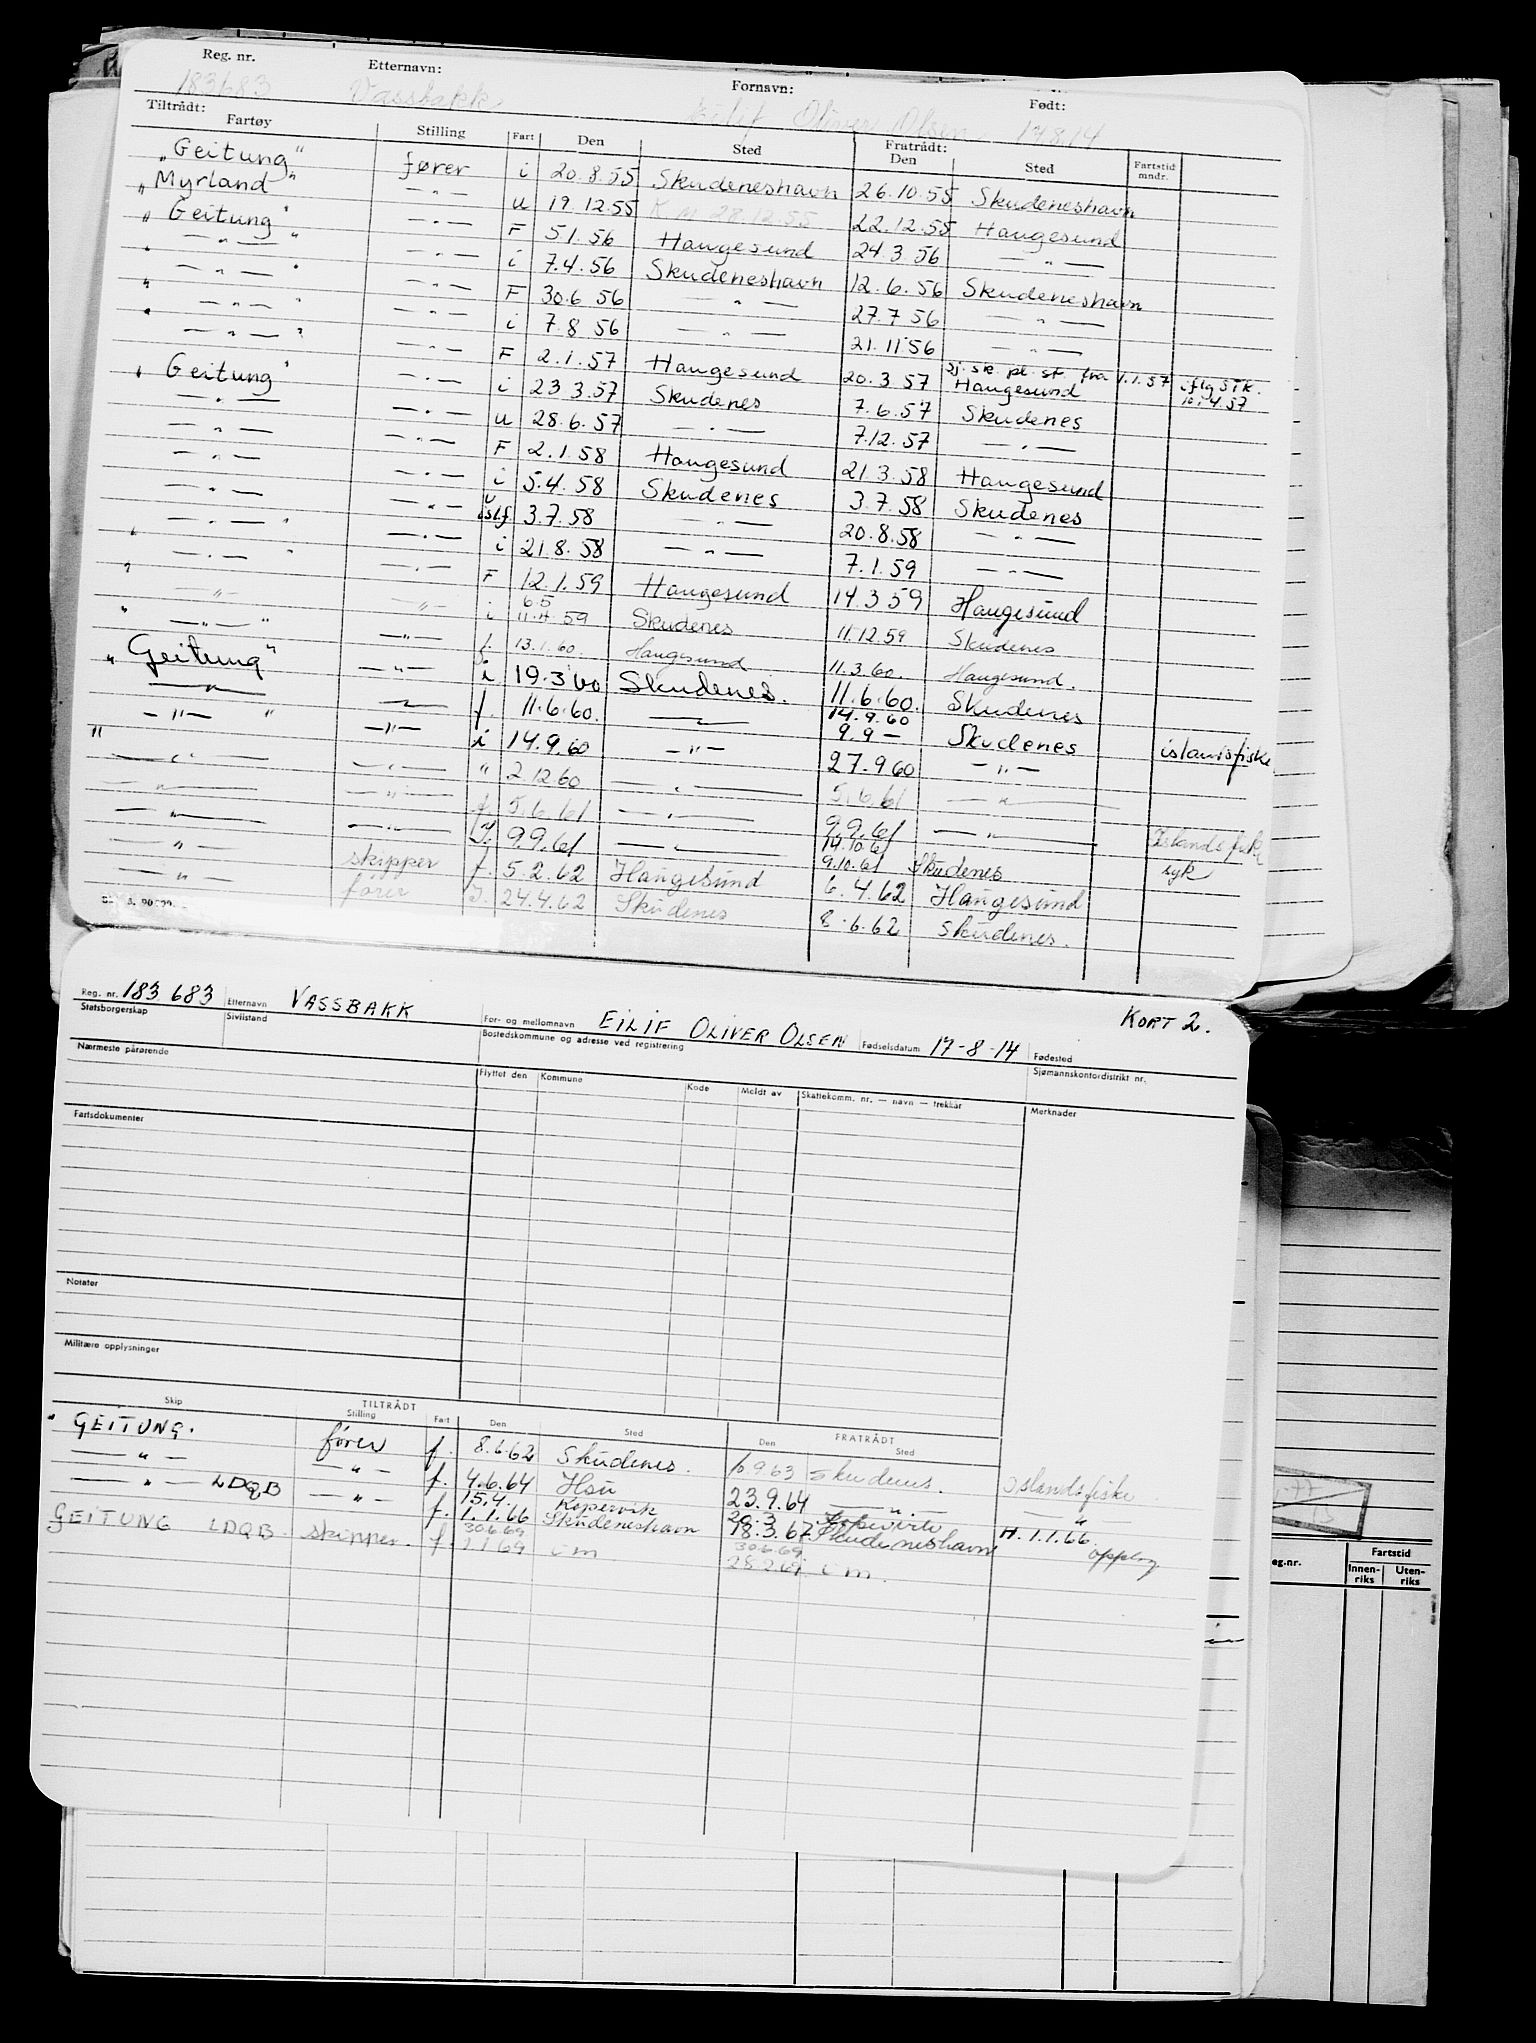 Reg. nr. Etternavn: Fornavn: Født:
183683 Vassbakk Eilif Oliver Olsen 17 8 14
Tiltrådt: Fratrådt:
Fartøy Stilling Fart Den Sted Den Sted Fartstid mndr.
"Geitung" fører i 20.8.55 Skudeneshavn 26.10.55 Skudeneshavn
"Myrland" — " — u 19.12.55 K M 28.12.55 22.12.55 Haugesund
"Geitung" — " — F 5.1.56 Haugesund 24.3.56 — " —
" — " — " — " — i 7.4.56 Skudeneshavn 12.6.56 Skudeneshavn
" — " — " — " — F 30.6 56 — " — 27.7 56 — " —
" — " — " — " — i 7.8 56 — " — 21.11 56 — " —
" — " — " — " — F 2.1.57 Haugesund 20.3 57 Haugesund sj. sk. pl. st. fra 1.1.57 iflg STK. 10.4.57
"Geitung" — " — i 23 3.57 Skudenes 7.6.57 Skudenes
— " — — " — u 28.6.57 — " — 7.12.57 — " —
— " — — " — F 2.1.58 Haugesund 21 3.58 Haugesund
— " — — " — i 5.4.58 Skudenes 3.7.58 Skudenes
— " — — " — u islf 3.7.58 — " — 20.8.58 — " —
" — " — " — " — i 21.8.58 — " — 7.1.59 — " —
" — " — " — " — F 12.1.59 Haugesund 14.3 59 Haugesund
— " — — " — i 6.5 11.4.59 Skudenes 11.12.59 Skudenes
" — " — " — " — f. 13.1.60. Haugesund 11.3.60. Haugesund.
"Geitung" — " — i 19.3 60 Skudenes. 11.6.60. Skudenes
— " — — " — f. 11.6.60. — " — 14.9.60 9.9 — Skudenes islandsfiske
" — " — " — " — i 14.9.60 — " — 27.9 60 — " —
— " — — " — " 2 12.60 — " — 5.6.61 — " —
— " — — " — f. 5.6.61 — " — 9.9.61 — " — Islandsfiske
— " — — " — I. 9.9.61 — " — 14.10.61 9.10.61 Skudenes syk
— " — skipper f. 5.2.62 Haugesund 6.4.62 Haugesund
— " — fører I. 24.4.62 Skudenes 8.6.62 Skudenes.
Reg. nr. 183 683 Etternavn VASSBAKK For- og mellomnavn EILIF OLIVER OLSEN Fødselsdatum 17-8-14 Fødested KORT 2.
Statsborgerskap Sivilstand Bostedskommune og adresse ved registrering Sjømannskontordistrikt nr.
Nærmeste pårørende Flyttet den Kommune Kode Meldt av Skattekomm. nr. — navn — trekkår Merknader
Fartsdokumenter
Notater
Militære opplysninger
TILTRÅDT FRATRÅDT
Skip Stilling Fart Den Sted Den Sted
" GEITUNG. fører f. 8.6.62 Skudenes. 6.9.63 Skudenes. Islandsfiske
— " — — " — f. 4.6.64 Hsu 23.9.64 — " — — " —
— " — LDQB — " — f. 15.4. 1.1.66 Kopervik Skudeneshavn 20.3 18.3.67 Skudeneshavn H. 1.1.66.
GEITUNG LDQB. skipper. f. 30.6.69 2.1.69 i m 30.6.69 28.2.69 i m. opplag
eg.nr. Fartstid
Innen-riks Uten-riks